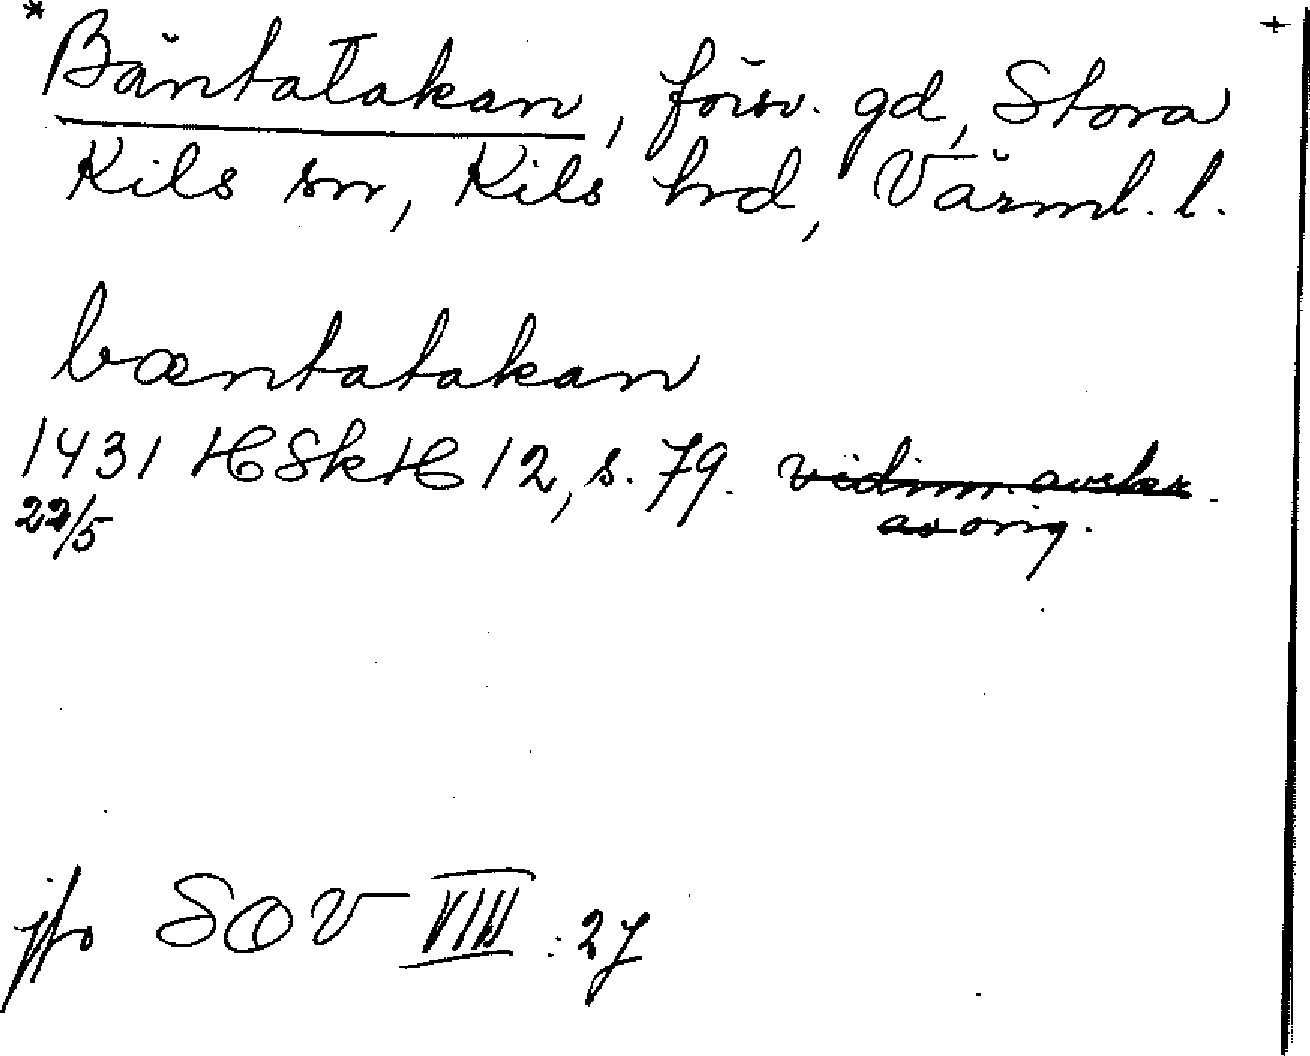 * Bäntatakan, försv. gd, Stora +
Kils sn, Kils hrd, Värml. l.
bæntatakan
1431 HSkH 12, s. 79. vidim. avskr.
22/5 av orig.
jfr SOV VIII: 27